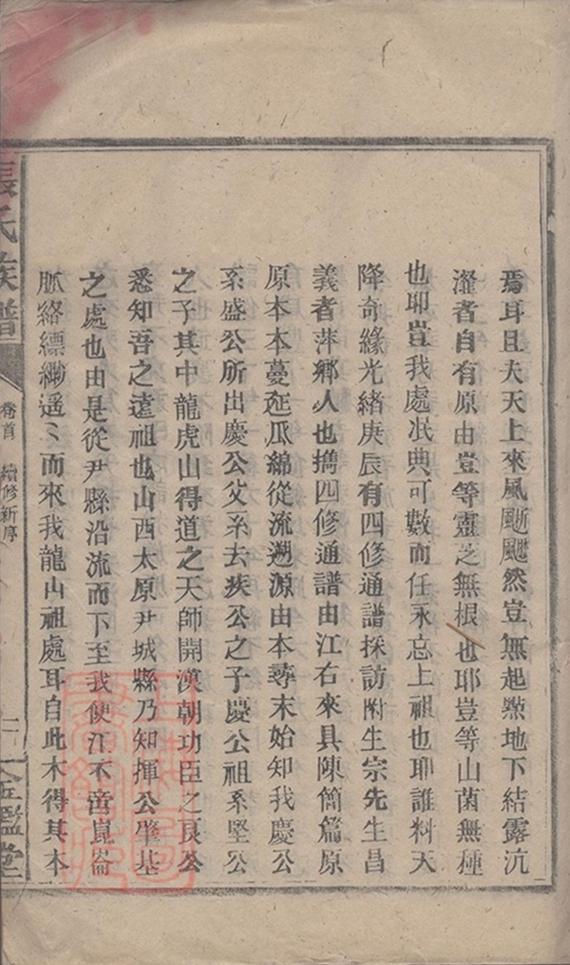 焉耳且夫天上來風颷颸然豈無起㸃地下結露沆
瀣者自有原由豈等靈芝無根也耶豈等山菌無種
也耶豈我處泯典可數而任永忘上祖也耶誰料天
降奇緣光緒庚辰有四修通譜採訪附生宗先生昌
義者萍鄉人也擕四修通譜由江右來具陳簡篇原
原本本蔓延瓜綿從流遡源由本尋末始知我慶公
系盛公所出慶公父系去疾公之子慶公祖系堅公
之子其中龍虎山得道之天師開漢朝功臣之良公
悉知吾之遠祖也山西太原尹城縣乃知揮公肇基
之處也由是從尹縣沿流而下至我使江不啻崑崙
脈絡縹緲遥〻而來我龍山祖處耳自此木得其本
張氏族譜
卷首
續修新序
二
金鑑堂